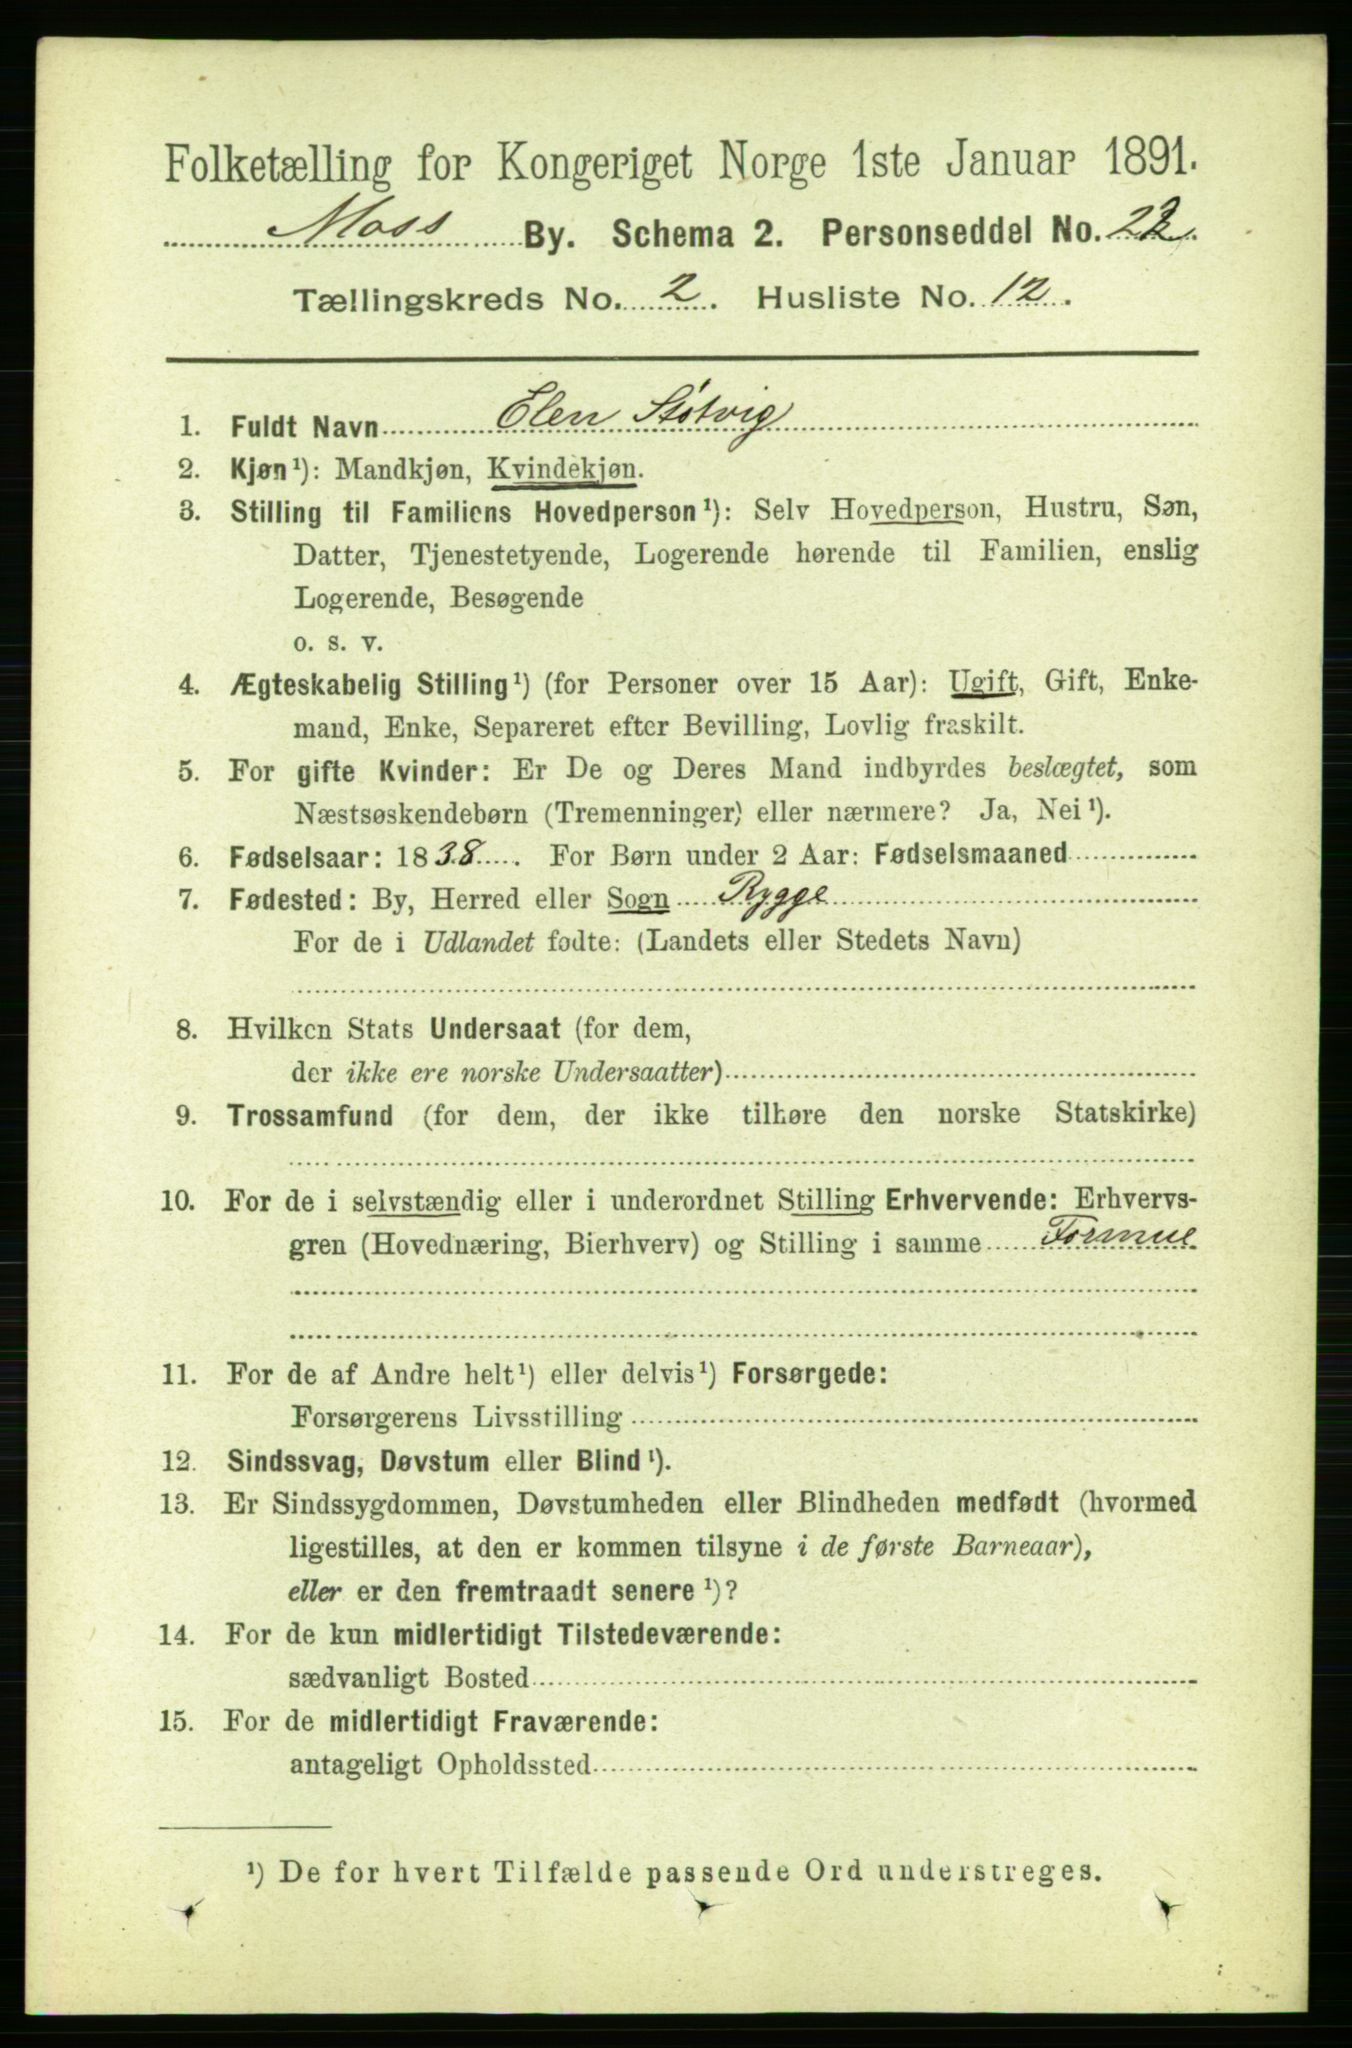 Folketælling for Kongeriget Norge 1ste Januar 1891.
Moss By. Schema 2. Personseddel No. 22.
Tællingskreds No. 2. Husliste No. 12.
1. Fuldt Navn Elen Støtvig
2. Kjøn¹): Mandkjøn, Kvindekjøn.
3. Stilling til Familiens Hovedperson¹): Selv Hovedperson, Hustru, Søn,
Datter, Tjenestetyende, Logerende hørende til Familien, enslig
Logerende, Besøgende
o. s. v.
4. Ægteskabelig Stilling¹) (for Personer over 15 Aar): Ugift, Gift, Enke-
mand, Enke, Separeret efter Bevilling, Lovlig fraskilt.
5. For gifte Kvinder: Er De og Deres Mand indbyrdes beslægtet, som
Næstsøskendebørn (Tremenninger) eller nærmere? Ja, Nei¹).
6. Fødselsaar: 1838. For Børn under 2 Aar: Fødselsmaaned
7. Fødested: By, Herred eller Sogn Rygge
For de i Udlandet fødte: (Landets eller Stedets Navn)
8. Hvilken Stats Undersaat (for dem,
der ikke ere norske Undersaatter)
9. Trossamfund (for dem, der ikke tilhøre den norske Statskirke)
10. For de i selvstændig eller i underordnet Stilling Erhvervende: Erhvervs-
gren (Hovednæring, Bierhverv) og Stilling i samme Formue
11. For de af Andre helt¹) eller delvis¹) Forsørgede:
Forsørgerens Livsstilling
12. Sindssvag, Døvstum eller Blind¹).
13. Er Sindssygdommen, Døvstumheden eller Blindheden medfødt (hvormed
ligestilles, at den er kommen tilsyne i de første Barneaar),
eller er den fremtraadt senere¹)?
14. For de kun midlertidigt Tilstedeværende:
sædvanligt Bosted
15. For de midlertidigt Fraværende:
antageligt Opholdssted
¹) De for hvert Tilfælde passende Ord understreges.